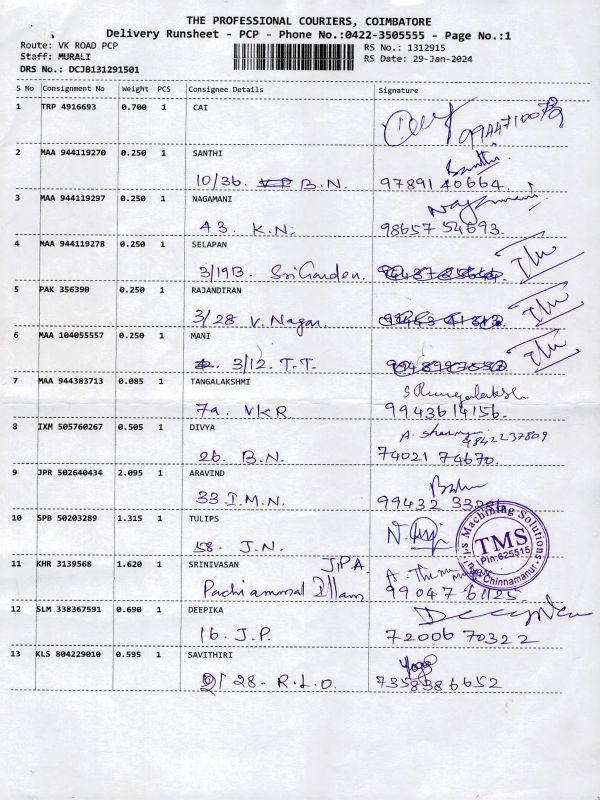 THE PROFESSIONAL COURIERS, COIMBATORE
Delivery Runsheet - PCP - Phone No.:0422-3505555 - Page No.:1
Route: VK ROAD PCP RS No.: 1312915
Staff: MURALI RS Date: 29-Jan-2024
DRS No.: DCJB131291501
S No Consignment No Weight PCS Consignee Details Signature
1 TRP 4916693 0.700 1 CAI
2 MAA 944119270 0.250 1 SANTHI Santhi
10/36. B.N. 97891 40664.
3 MAA 944119297 0.250 1 NAGAMANI Nagamani
43. K.N. 98657 54693.
4 MAA 944119278 0.250 1 SELAPAN
3/19B. Sri Garden.
5 PAK 356390 0.250 1 RAJANDIRAN
3/28 V. Nagar.
6 MAA 104055557 0.250 1 MANI
3/12. T.T.
7 MAA 944383713 0.085 1 TANGALAKSHMI
7a. VKR. 99436 14156.
8 IXM 505760267 0.505 1 DIVYA 9842237809
26. B.N. 74021 74670.
9 JPR 502640434 2.095 1 ARAVIND
33 I.M.N. 99432
10 SPB 50203289 1.315 1 TULIPS
58. J.N.
Machining Solutions
TMS
Pin:625515
Chinnamanur
11 KHR 3139568 1.620 1 SRINIVASAN J.P.A.
Pachiammal Illam 99047 61125
12 SLM 338367591 0.690 1 DEEPIKA
16. J.P. 72006 70322
13 KLS 804229010 0.595 1 SAVITHIRI
2/28. R.L.O. 7358386652